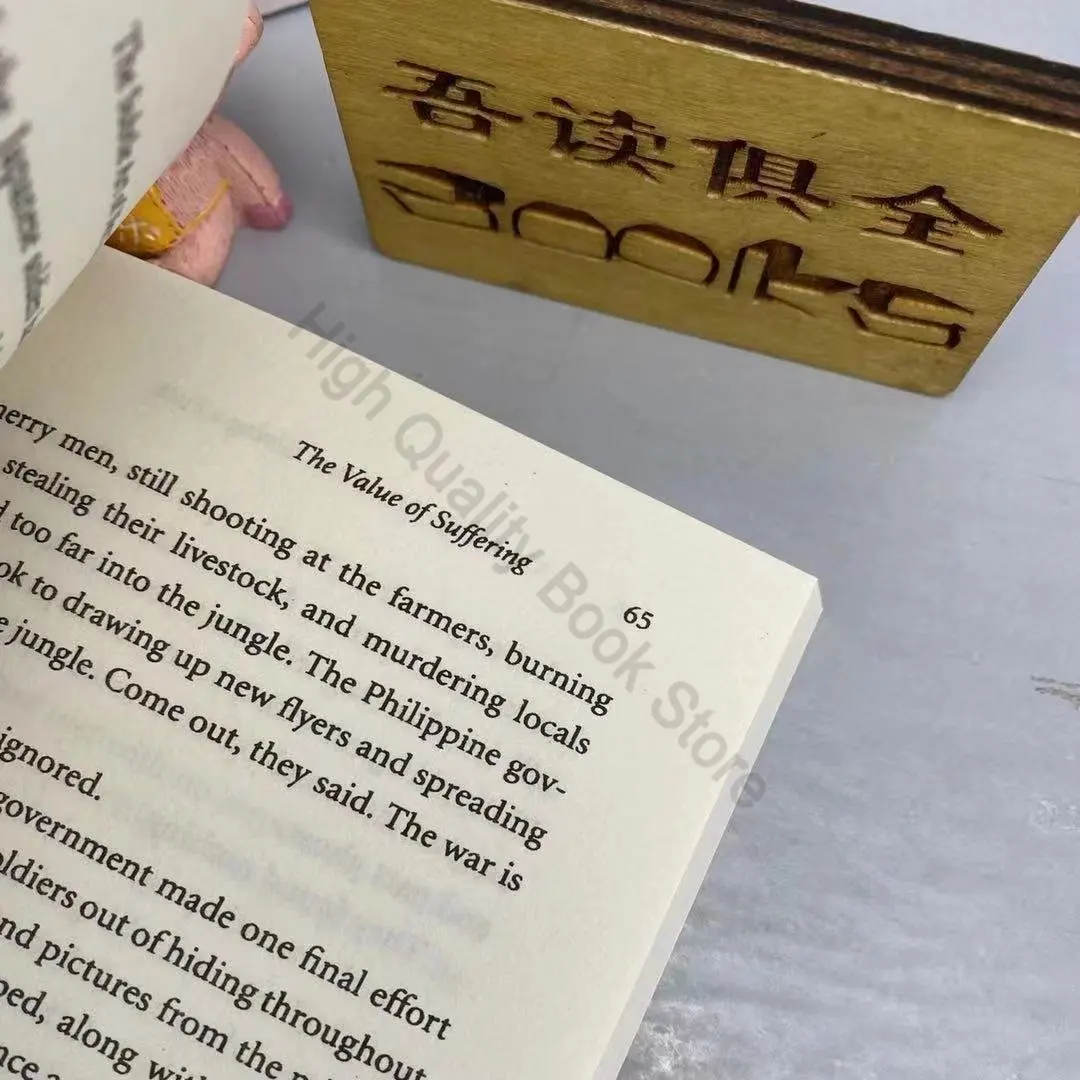 吾读俱全
Books
High Quality Book Store
The Value of Suffering
65
merry men, still shooting at the farmers, burning
stealing their livestock, and murdering locals
too far into the jungle. The Philippine gov-
to drawing up new flyers and spreading
jungle. Come out, they said. The war is
ignored.
government made one final effort
soldiers out of hiding throughout
and pictures from the
along with